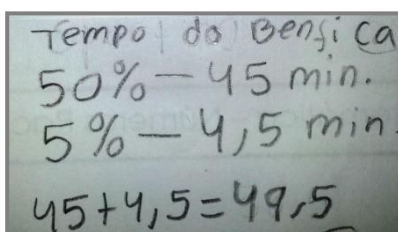 Tempo do Benfica
50% – 45 min.
5% – 4,5 min.
45+4,5=49,5